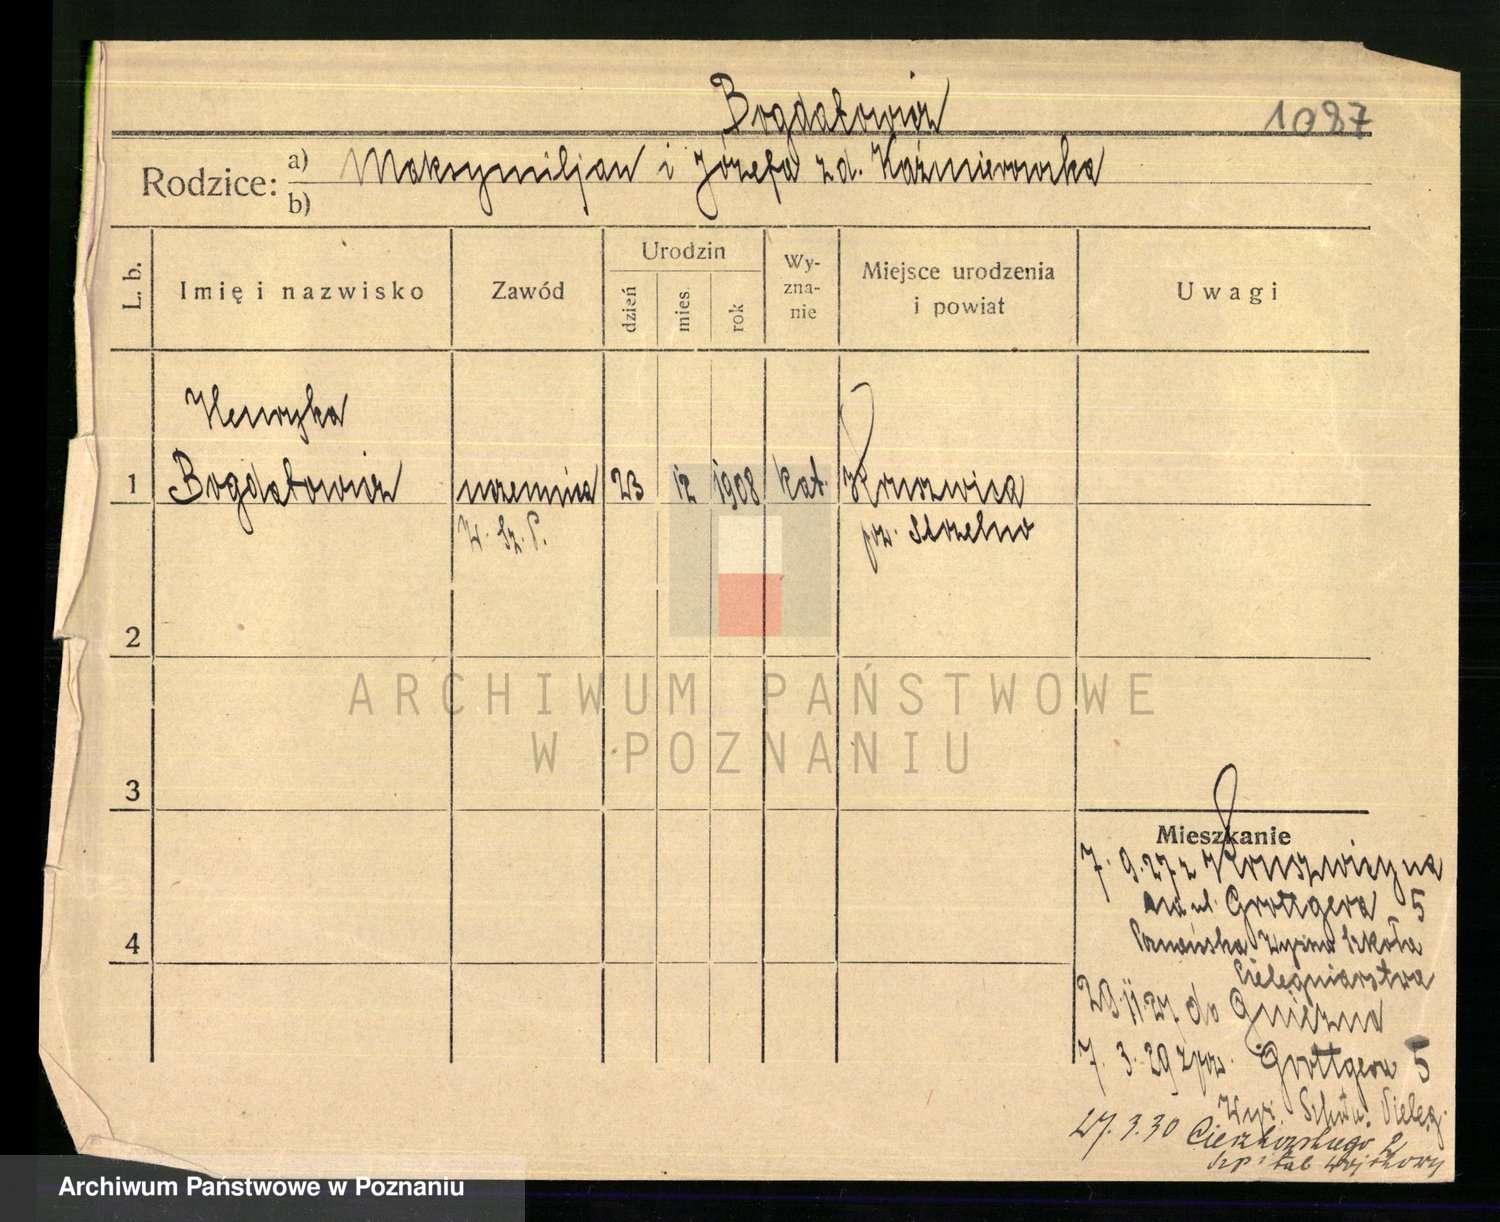 Bogdatowicz
1087
Rodzice: a) Maksymiljan i Józefa z d. Kaźmierowska
b)
L. b.
Imię i nazwisko
Zawód
Urodzin
dzień
mies.
rok
Wy-
zna-
nie
Miejsce urodzenia
i powiat
Uwagi
Henryka
1 Bogdatowicz uczennica 23 12 1908 kat. Kruszwica
W. Sz. P.
pow. Strzelno
2
3
4
Mieszkanie
7. 9. 27 z Kruszwicy na
ul. Grottgera 5
Poznańska Wyższa Szkoła
Pielęgniarstwa
29. 11. 27 do Gniezna
7. 3. 29 z pow. Grottgera 5
Pielęg.
27. 3. 30 Cieszkowskiego 2
Szpital Wojskowy
ARCHIWUM PAŃSTWOWE
W POZNANIU
Archiwum Państwowe w Poznaniu